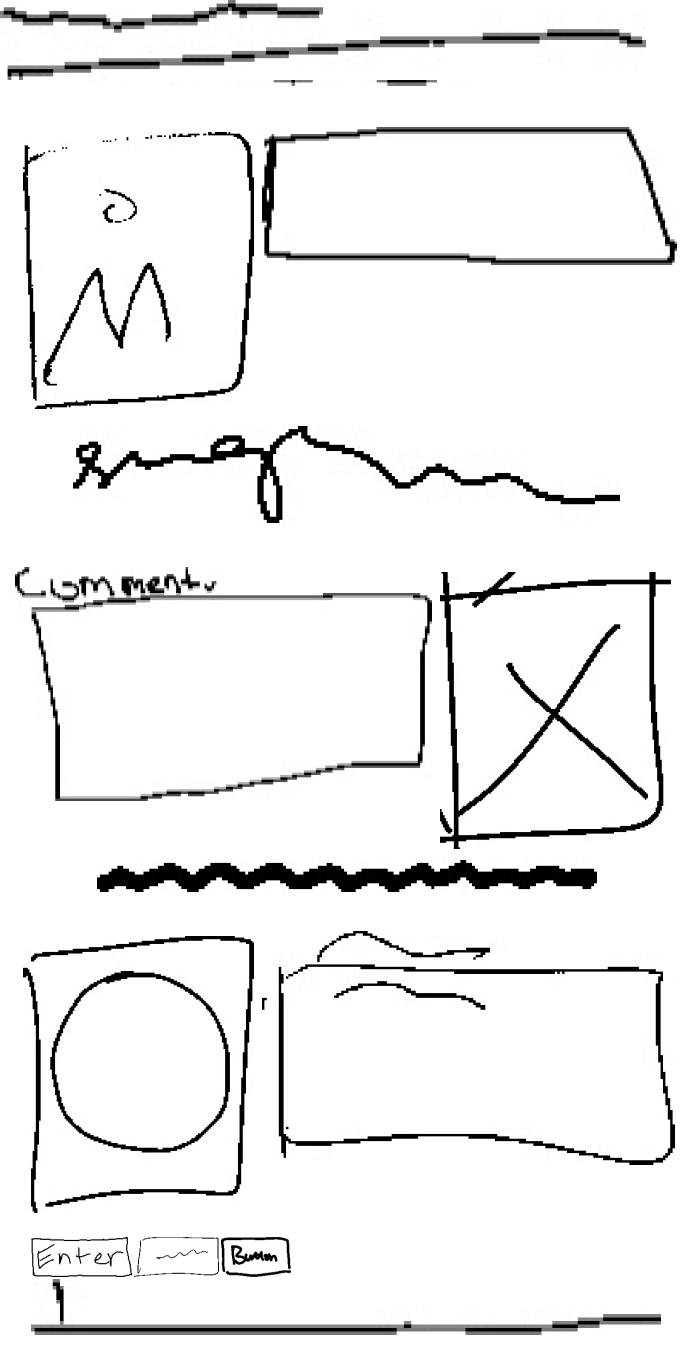 Comment.
Enter
Button